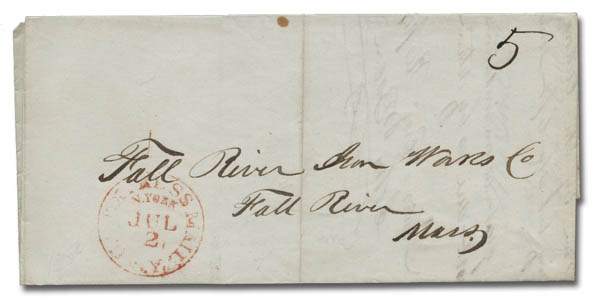 5
Fall River Iron Works Co
Fall River
Mass
EXPRESS MAIL
N.YORK
JUL
2